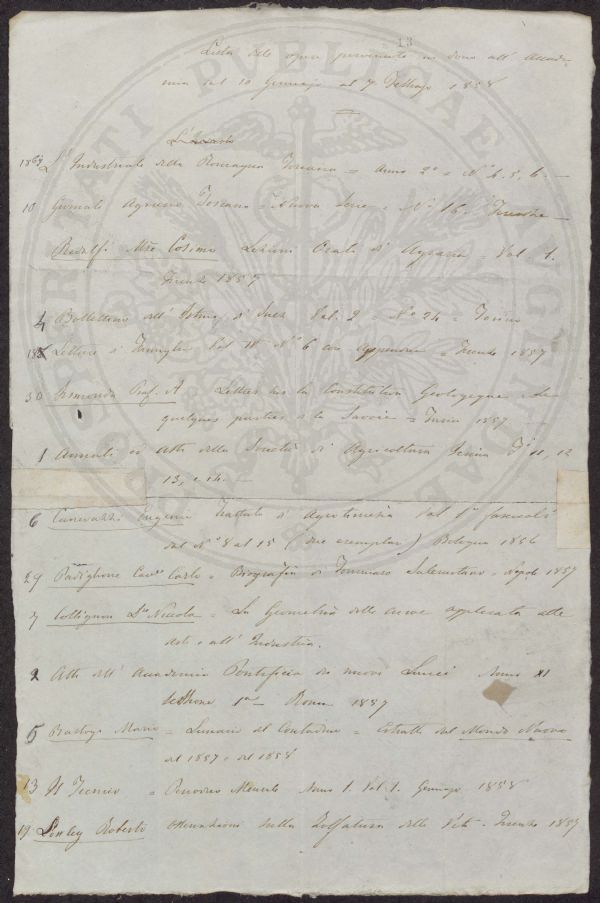 13
Lista delle opere pervenute in dono all' Accade-
mia dal 10 Gennajo al 7 Febbrajo 1858
L' Industriale della Romagna Toscana = Anno 2° = N° 4. 5, 6. —
10 Giornale Agrario Toscano = Nuova Serie = N° 16. Firenze —
Ridolfi Mse Cosimo Lezioni Orali di Agraria = Vol. 1.
Firenze 1857
4 Bollettino dell' Istmo di Suez Vol. 2 = N° 24 = Torino
Letture di Famiglia Vol N° 6 con Appendice = Trieste 1857
30 Sismonda Prof. A Lettres sur la Constitution Geologique de
quelques parties de la Savoie = Turin 1857 —
1 Annali ed Atti della Società di Agricoltura Jesina 11, 12
13, e 14. —
6 Canevazzi Eugenio Trattato di Agrotimesia dal 1° fascicolo
dal N° 8 al 15 (due exemplari) Bologna 1856
29 Padiglione Cav. Carlo = Biografia di Tommaso = Napoli 1857
7 Cottignon Nicola = La Geometria delle curve applicata alle
arti, e all' Industria.
2 Atti dell' Accademia Pontificia dei nuovi Lincei Anno XI
Sessione 1a — Roma 1857
5 Mario = Lunario del Contadino = Estratto dal Mondo Nuovo
del 1857 e del 1858
13 Il Tecnico = Periodico Mensile Anno 1. Vol. 1. Gennajo 1858
17 Roberto Osservazioni sulla Zolfatara delle = Firenze 1857